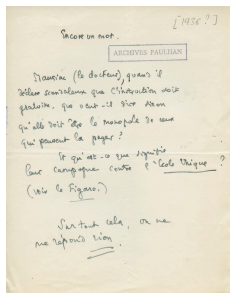 [1936?]
Encore un mot.
ARCHIVES PAULHAN
Mauriac (le docteur), quand il
scandaleux que l'instruction soit
gratuite, que veut-il dire sinon
qu'elle doit être le monopole de ceux
qui peuvent la payer?
Et qu'est-ce que signifie
leur campagne contre l'École Unique ?
(voir le Figaro.)
Sur tout cela, on ne
me répond rien.